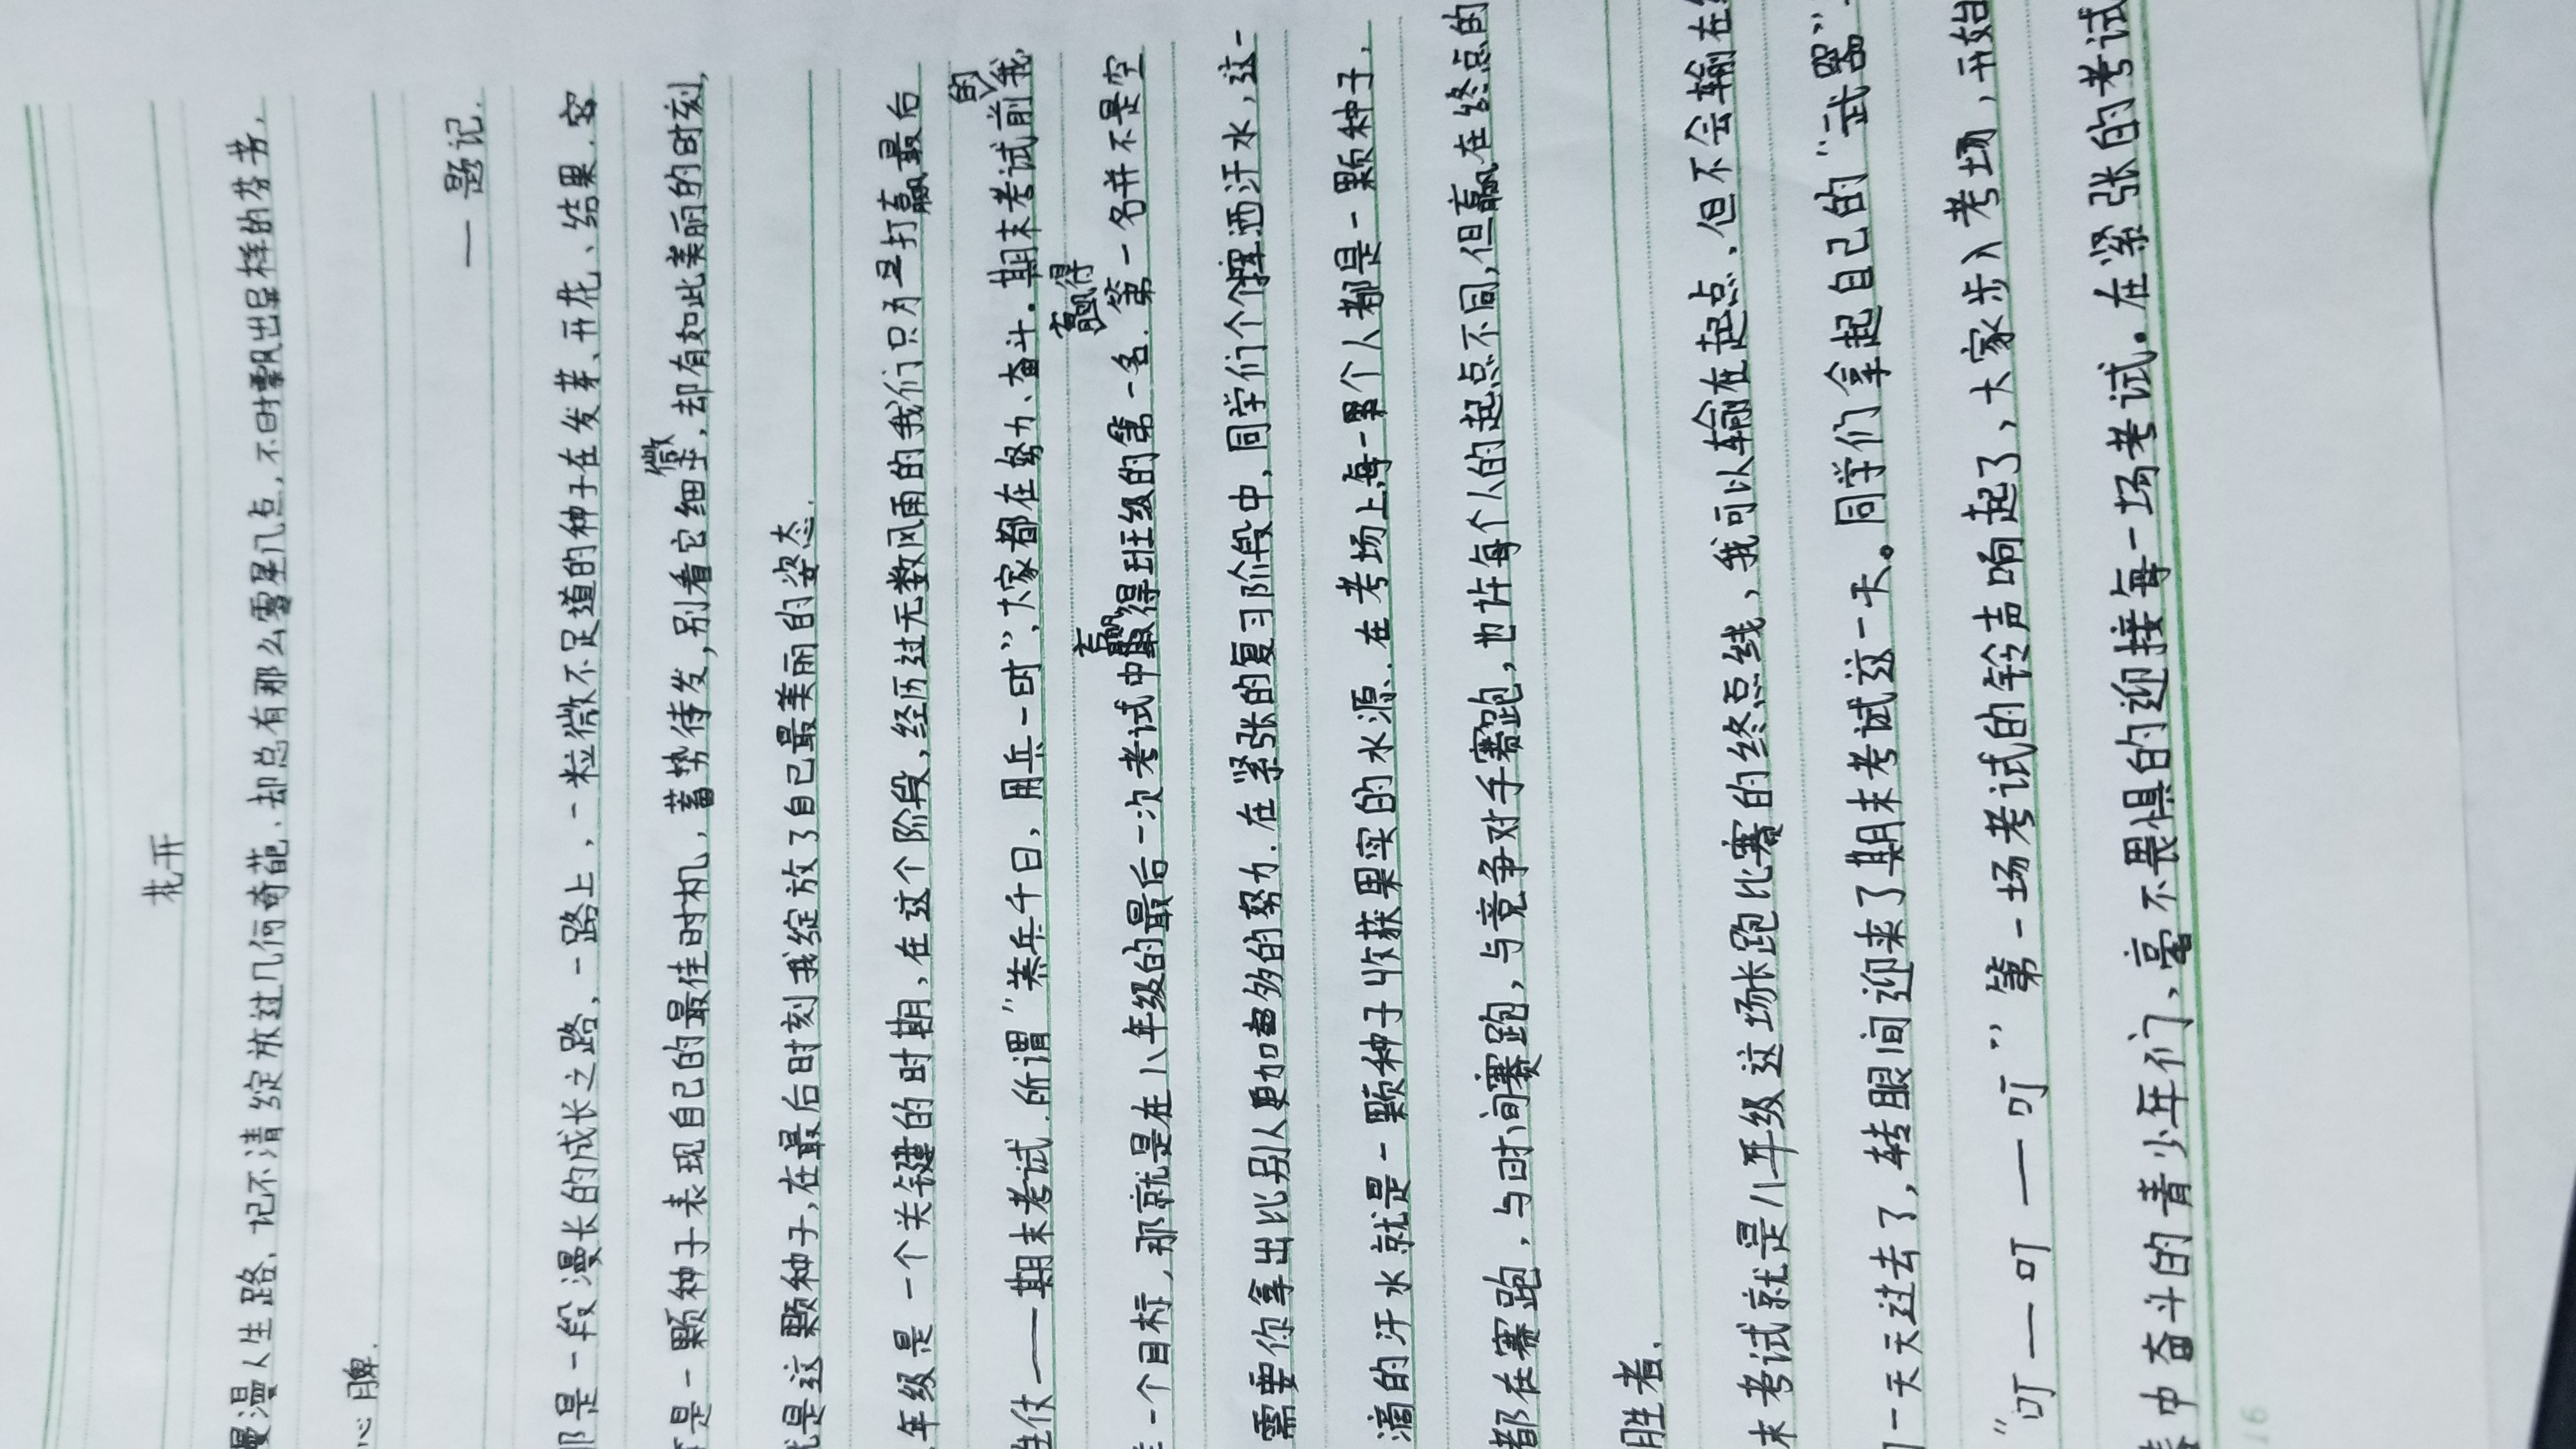 花开
漫漫人生路、记不清绽放过几何奇葩、却总有那么零星几点,不时飘出异样的芬芳.
心脾.
— 题记.
那是一段漫长的成长之路,一路上,一粒微不足道的种子在发芽、开花、结果.它
是一颗种子表现自己的最佳时机,蓄势待发,别看它细微,却有如此美丽的时刻,
就是这颗种子,在最后时刻我绽放了自己最美丽的姿态.
年级是一个关键的时期,在这个阶段,经历过无数风雨的我们只为早打赢最后
胜仗——期末考试.所谓"养兵千日,用兵一时",大家都在努力、奋斗.期末考试前的我
一个目标,那就是在八年级的最后一次考试中赢得班级的第一名.赢得第一名并不是空
需要你拿出比别人更加多的努力.在紧张的复习阶段中,同学们个个挥洒汗水,这一
滴的汗水就是一颗种子收获果实的水源.在考场上每一个人都是一颗种子,
都在赛跑,与时间赛跑,与竞争对手赛跑,也许每个人的起点不同,但赢在终点的
胜者.
末考试就是八年级这场长跑比赛的终点线,我可以输在起点、但不会输在
一天天过去了,转眼间迎来了期末考试这一天。同学们拿起自己的"武器".
"叮—叮—叮"第一场考试的铃声响起了,大家步入考场,开始
中奋斗的青少年们、毫不畏惧的迎接每一场考试。在紧张的考试
16